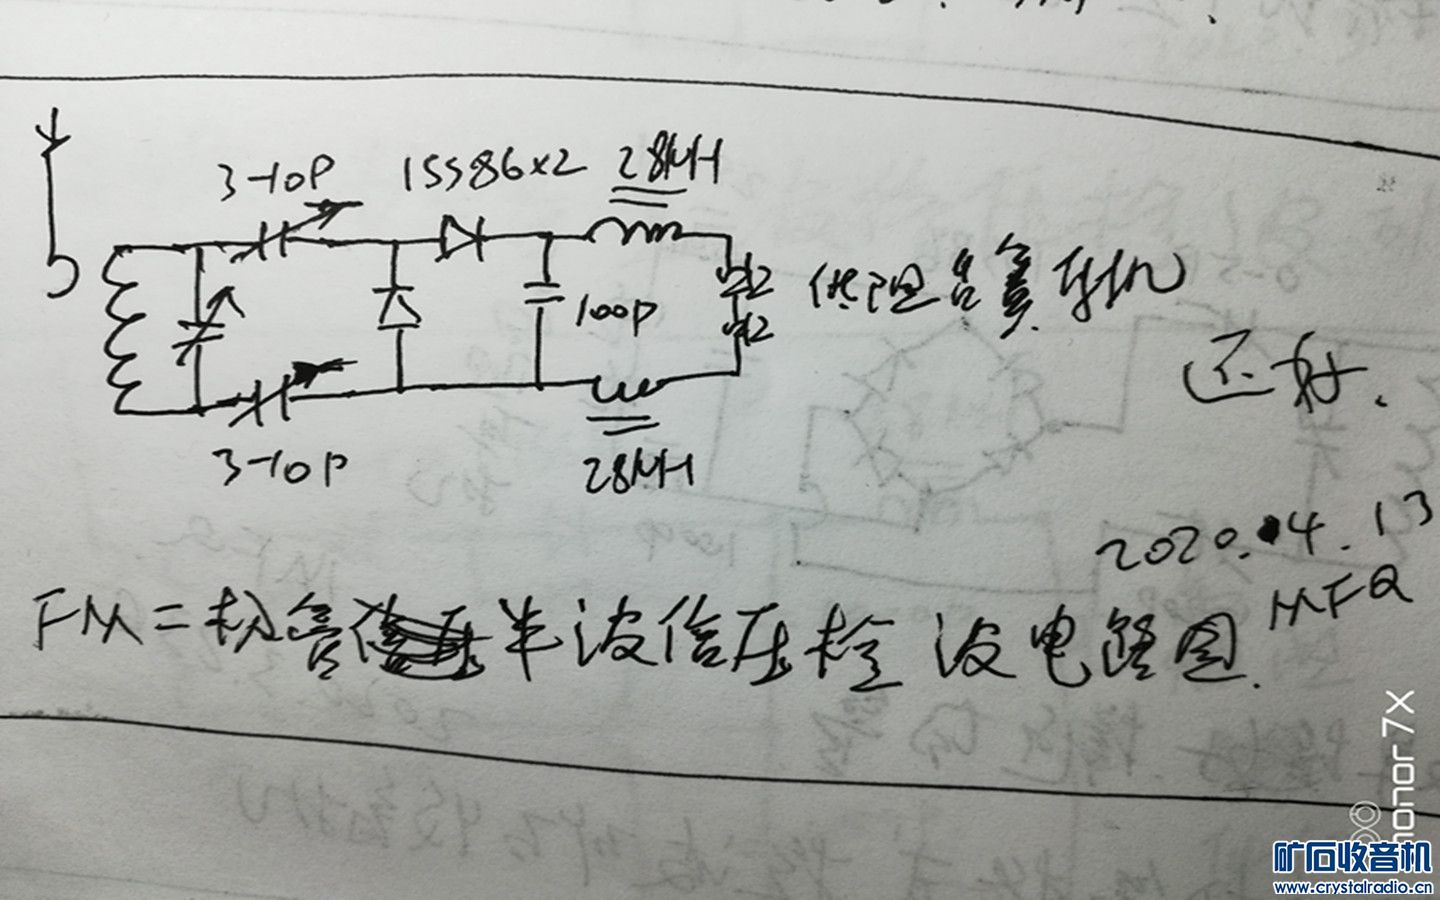 3-10P 1SS86×2 28MH
100P
3-10P 28MH
还好.
2020.4.13
MFQ
FM=极管半波倍压检波电路图.
honor 7X
矿石收音机
www.crystalradio.cn